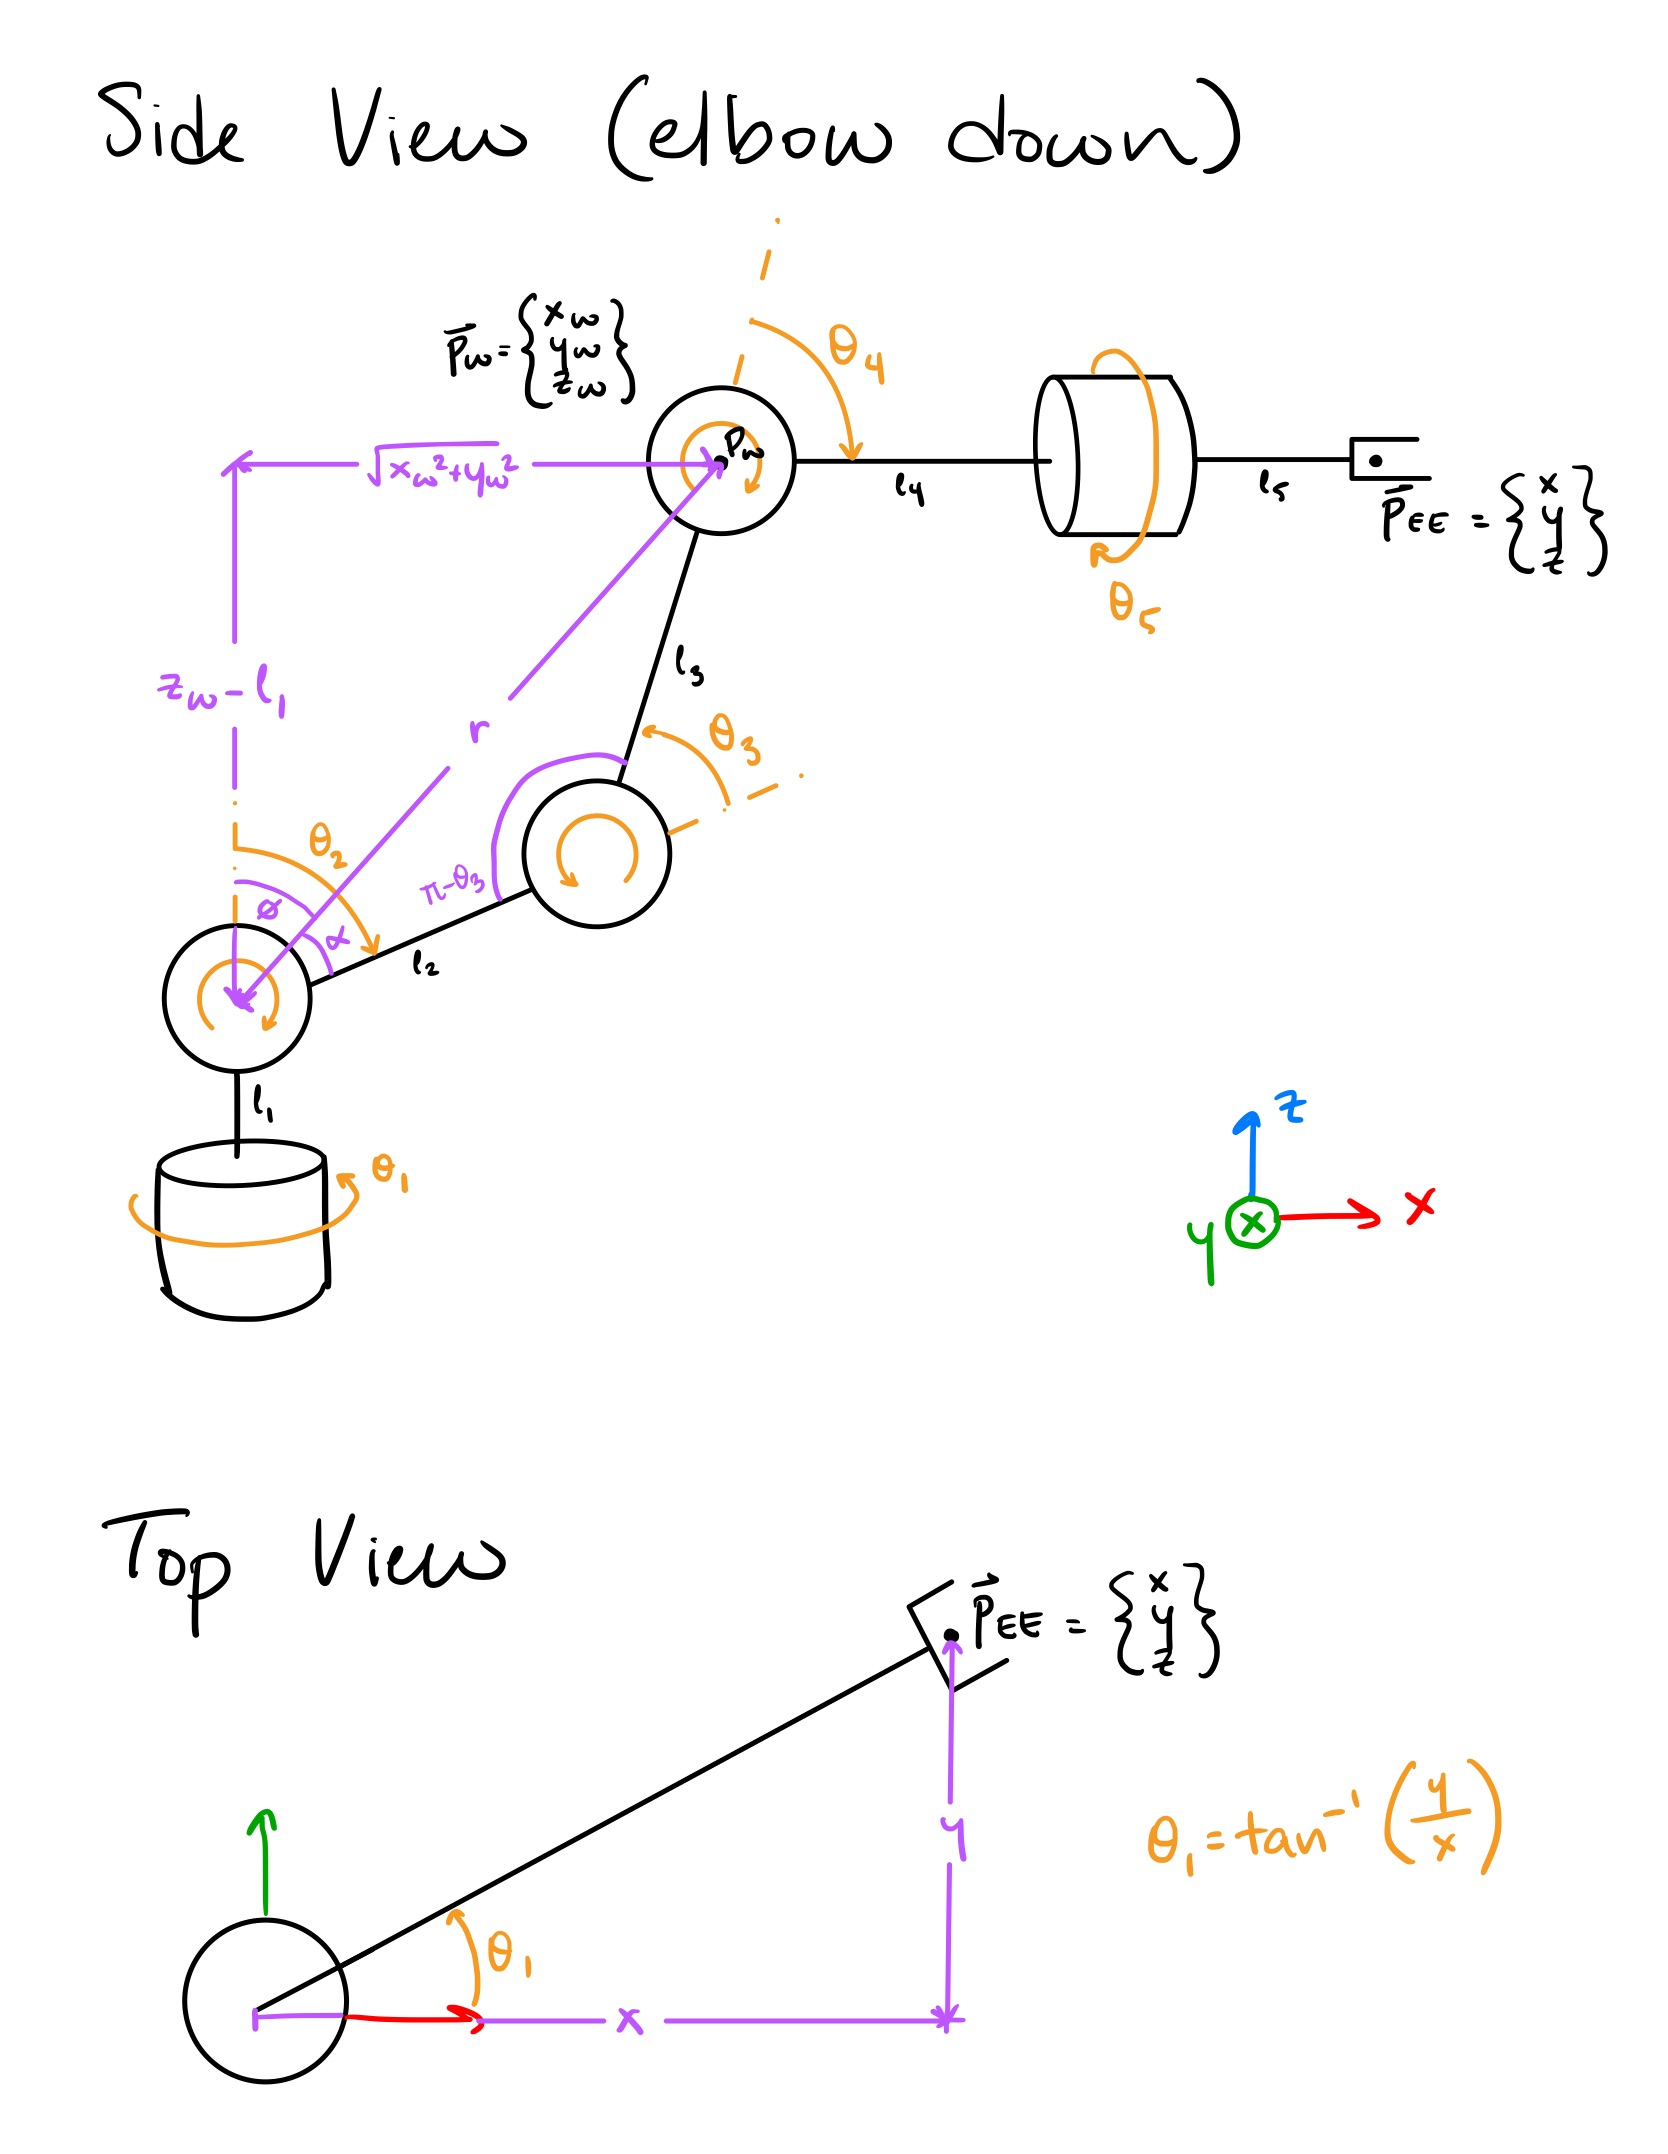 Side View (elbow down)
P̄w = { xw
yw
zw }
θ4
Pw
√xw²+yw²
l4
l5
P̄EE = { x
y
z }
θ5
zw - l1
l3
r
θ3
θ2
π-θ3
ø
α
l2
l1
θ1
z
x
y
Top View
P⃗EE = { x
y
z }
y
θ1 = tan⁻¹ (y/x)
θ1
x